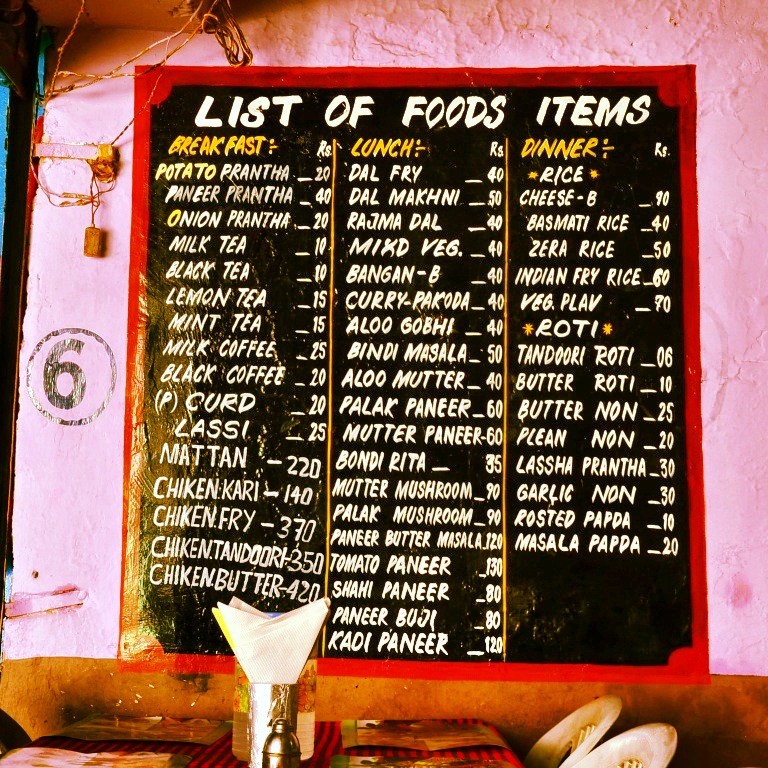 LIST OF FOODS ITEMS
BREAKFAST:- Rs.
POTATO PRANTHA _20
PANEER PRANTHA _40
ONION PRANTHA _20
MILK TEA _10
BLACK TEA _10
LEMON TEA _15
MINT TEA _15
MILK COFFEE _25
BLACK COFFEE _20
(P) CURD _20
LASSI _25
MATTAN -220
CHIKEN.KARI-140
CHIKEN.FRY-370
CHIKEN.TANDOORI-350
CHIKEN.BUTTER-420
LUNCH:- Rs.
DAL FRY _40
DAL MAKHNI _50
RAJMA DAL _40
MIXD VEG. _40
BANGAN-B _40
CURRY-PAKODA_40
ALOO GOBHI _40
BINDI MASALA_50
ALOO MUTTER_40
PALAK PANEER_60
MUTTER PANEER-60
BONDI RITA _ 35
MUTTER MUSHROOM_90
PALAK MUSHROOM_90
PANEER BUTTER MASALA.120
TOMATO PANEER _130
SHAHI PANEER _80
PANEER BUJI _80
KADI PANEER _120
DINNER:- Rs.
*RICE*
CHEESE-B _90
BASMATI RICE _40
ZERA RICE _50
INDIAN FRY RICE_60
VEG. PLAV _70
*ROTI*
TANDOORI ROTI _06
BUTTER ROTI _10
BUTTER NON _25
PLEAN NON _20
LASSHA PRANTHA_30
GARLIC NON _30
ROSTED PAPDA _10
MASALA PAPDA _20
6